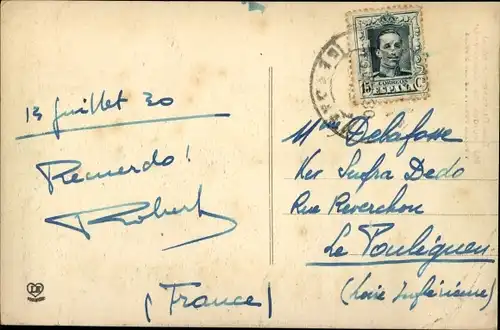 13 Juillet 30
Recuerdo!
Robert
(France)
CORREOS
15 Cs
ESPAÑA
Mme Delafosse
Ker Sufra Dedo
Rue Reverchon
Le Pouliguen
(Loire Inférieure)